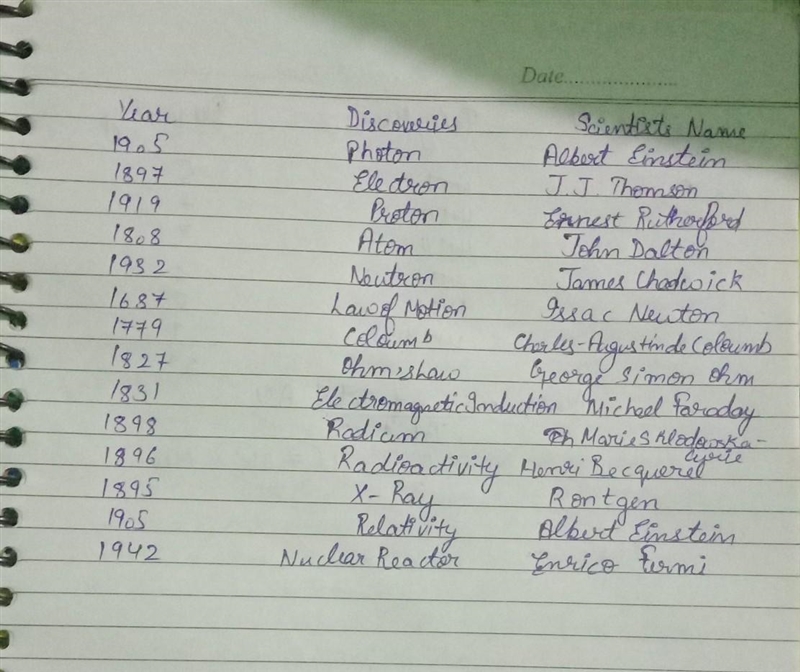 Date....................
Year Discoveries Scientists Name
1905 Photon Albert Einstein
1897 Electron J.J. Thomson
1919 Proton Ernest Rutherford
1808 Atom John Dalton
1932 Neutron James Chadwick
1687 Law of Motion Issac Newton
1779 Coloumb Charles-Augustin de Coloumb
1827 Ohm's George Simon Ohm
1831 Electromagnetic Induction Micheel Faraday
1898 Radium Marie Sklodowska-
1896 Radioactivity Henri Becquerel
1895 X-Ray Rontgen
1905 Relativity Albert Einstein
1942 Nuclear Reactor Enrico Fermi